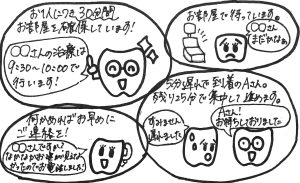 お1人につき30分間
お部屋を確保しています!
○○さんの治療は
9:30〜10:00で
行います!
お部屋で待っています。
○○さん
まだかなぁ
5分遅れで到着のAさん。
残り25分で集中して進めます。
すみません
遅れました
Aさん!
お待ちしておりました
何かあればお早めに
ご連絡を!
○○さんですか?
なかなかお姿が見えな
かったのでお電話しました!